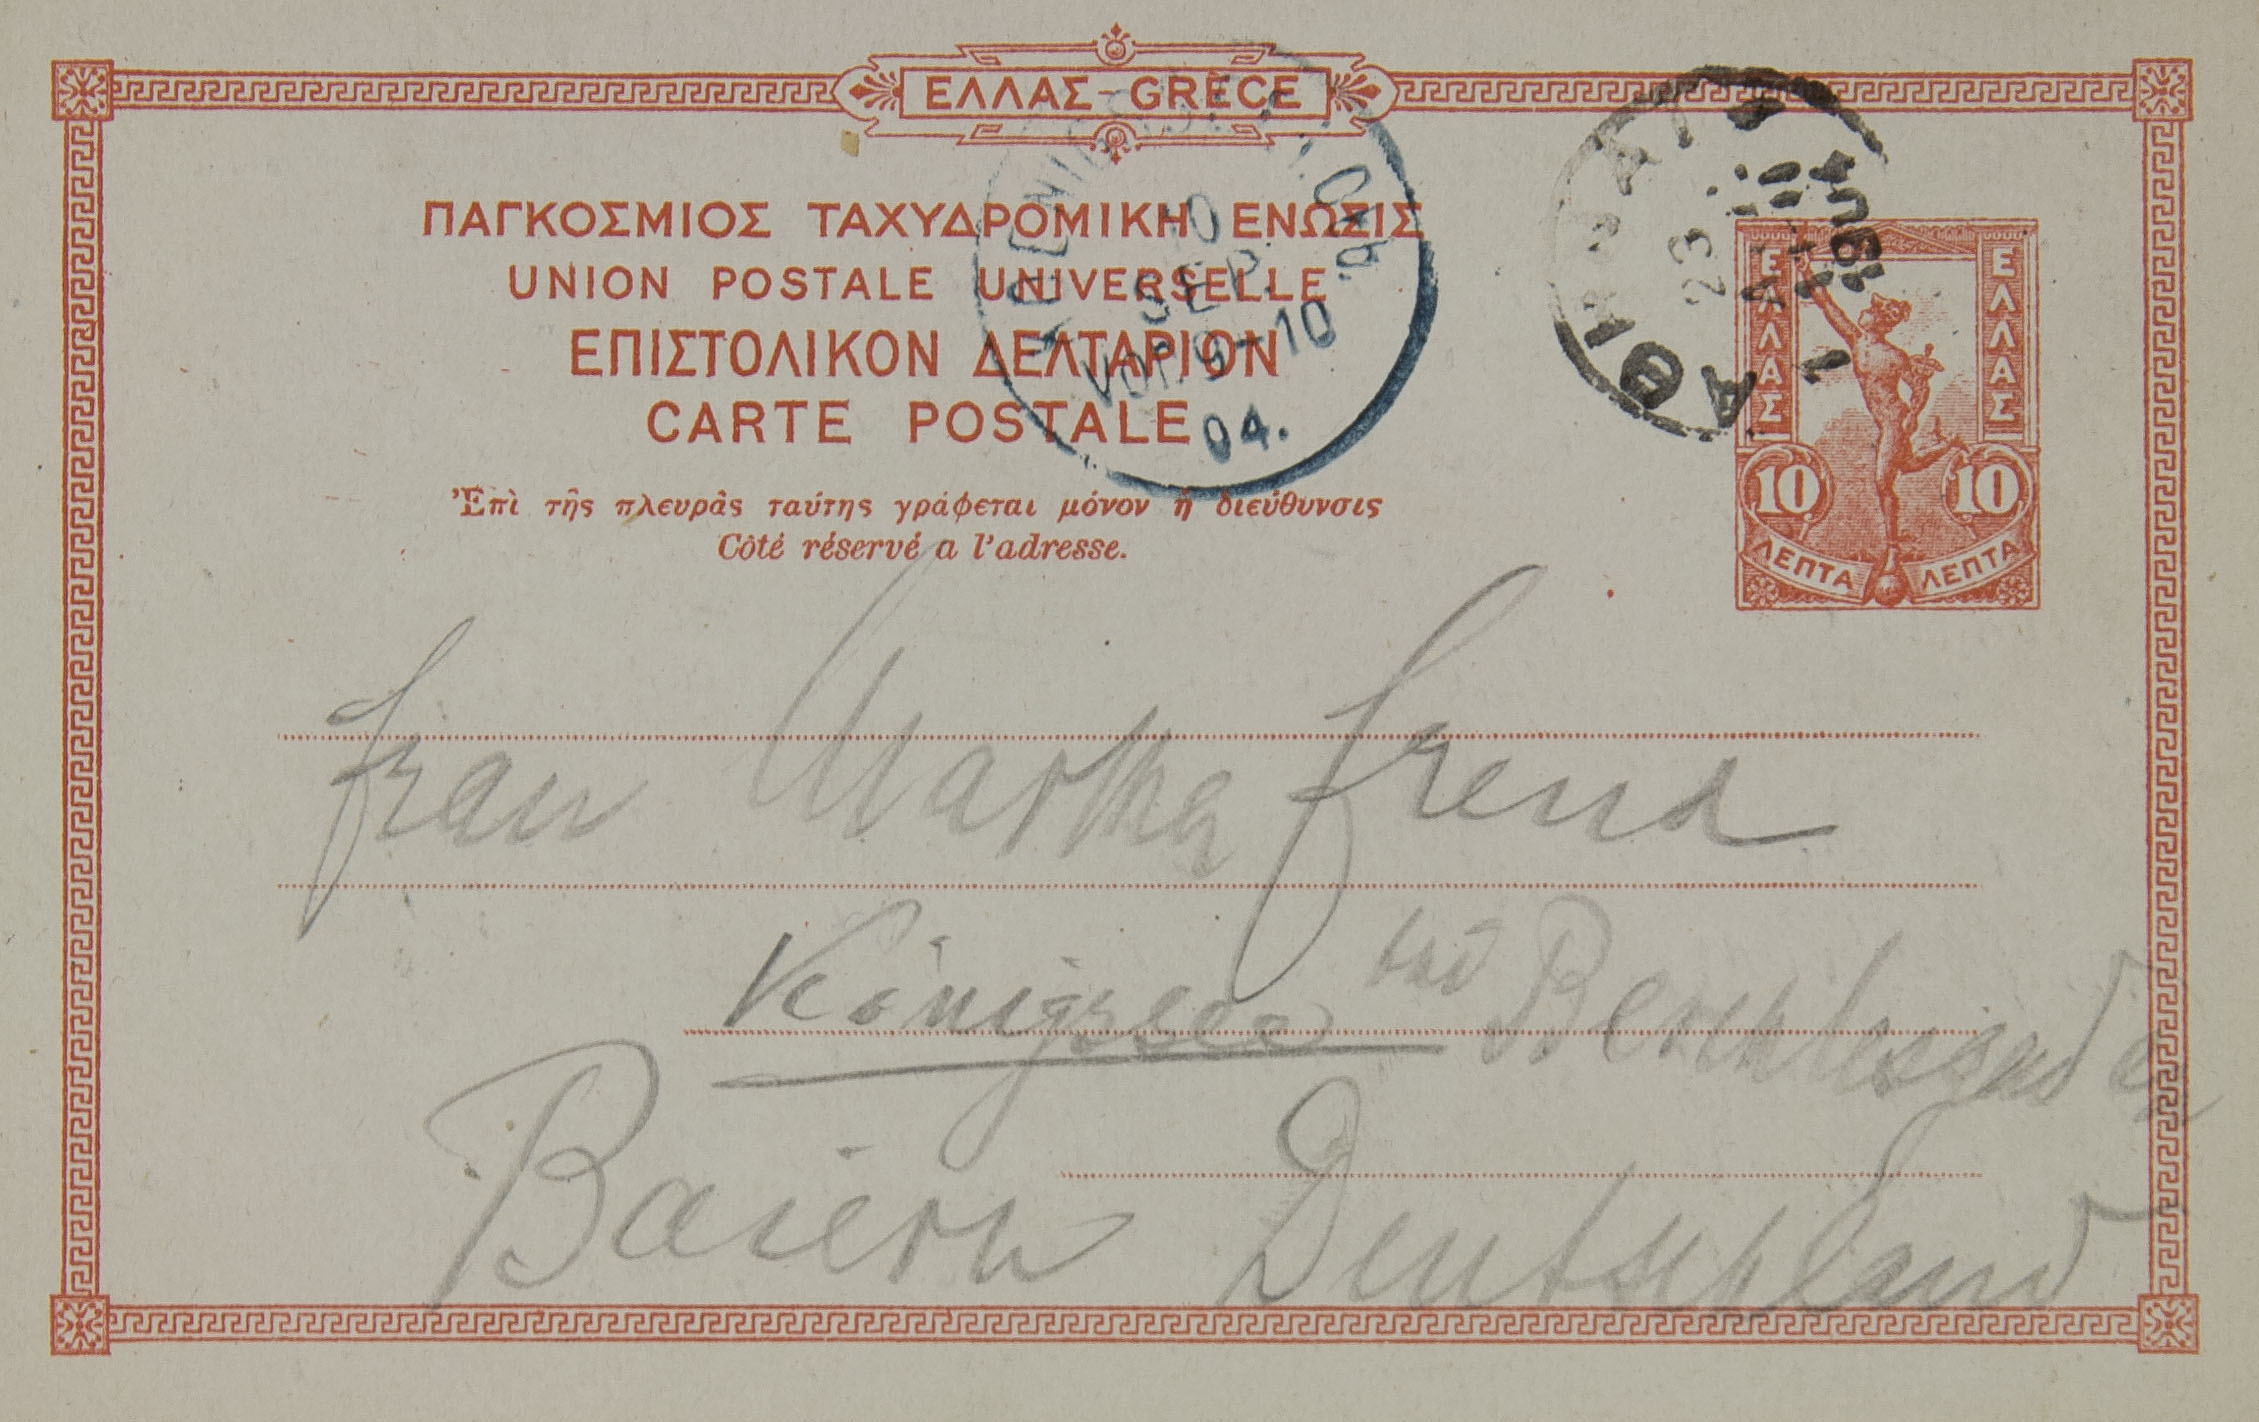 ΕΛΛΑΣ-GRÈCE
ΠΑΓΚΟΣΜΙΟΣ ΤΑΧΥΔΡΟΜΙΚΗ ΕΝΩΣΙΣ
UNION POSTALE UNIVERSELLE
ΕΠΙΣΤΟΛΙΚΟΝ ΔΕΛΤΑΡΙΟΝ
CARTE POSTALE
Ἐπὶ τῆς πλευρᾶς ταύτης γράφεται μόνον ἡ διεύθυνσις
Côté réservé a l'adresse.
10
SEP.
VOR. 9-10
04.
ΑΘΗΝΑΙ
23
1904
ΕΛΛΑΣ
ΕΛΛΑΣ
10 10
ΛΕΠΤΑ ΛΕΠΤΑ
Frau Martha Freud
Königssee bei Berchtesgaden
Baiern Deutschland